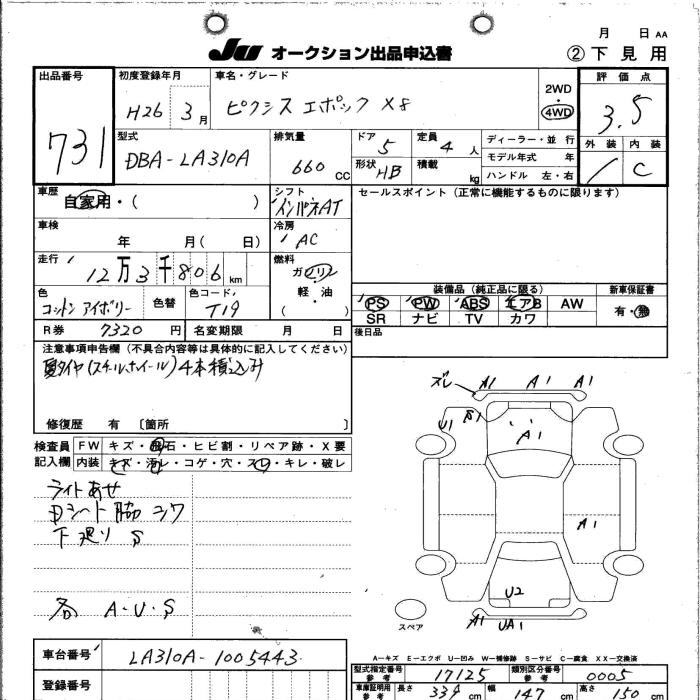 月 日 AA
JU オークション出品申込書 ②下見用
出品番号 初度登録年月 車名・グレード 2WD 評価点
731 H26 3月 ピクシス エポック X8 4WD 3.5
型式 排気量 ドア 定員 ディーラー・並 行 外装 内装
DBA-LA310A 660 CC 5 4人 モデル年式 年 C
形状 HB 積載 kg ハンドル 左・右
車歴 自家用・( ) シフト インパネAT セールスポイント(正常に機能するものに限ります)
車検 年 月( 日) 冷房 AC
走行 12万3千806km 燃料 ガソリン・軽油 ( 装備品(純正品に限る) 新車保証書
色 コットンアイボリー 色替 色コード T19 PS PW ABS エアB AW 有・無
SR ナビ TV カワ
R券 7320円 名変期限 月 日 後日品
注意事項申告欄(不具合内容等は具体的に記入してください)
夏タイヤ(スチールホイール)4本積込み
修復歴 有 〔箇所 〕
検査員 FW キズ・飛石・ヒビ割・リペア跡・X要
記入欄 内装 キズ・汚レ・コゲ・穴・スレ・キレ・破レ
ズレ A1 A1 A1
U1 S1
A1
ライトあせ
Dシート脇シワ
下廻り S
A1
U2
各 A・U・S
A1 UA1
スペア
A-キズ E-エクボ U-凹み W-補修跡 S-サビ C-腐食 XX-交換済
車台番号 LA310A-1005443 型式指定番号 参考 17125 類別区分番号 参考 0005
登録番号 車庫証明用 参考 長さ 339 cm 幅 147 cm 高さ 150 cm